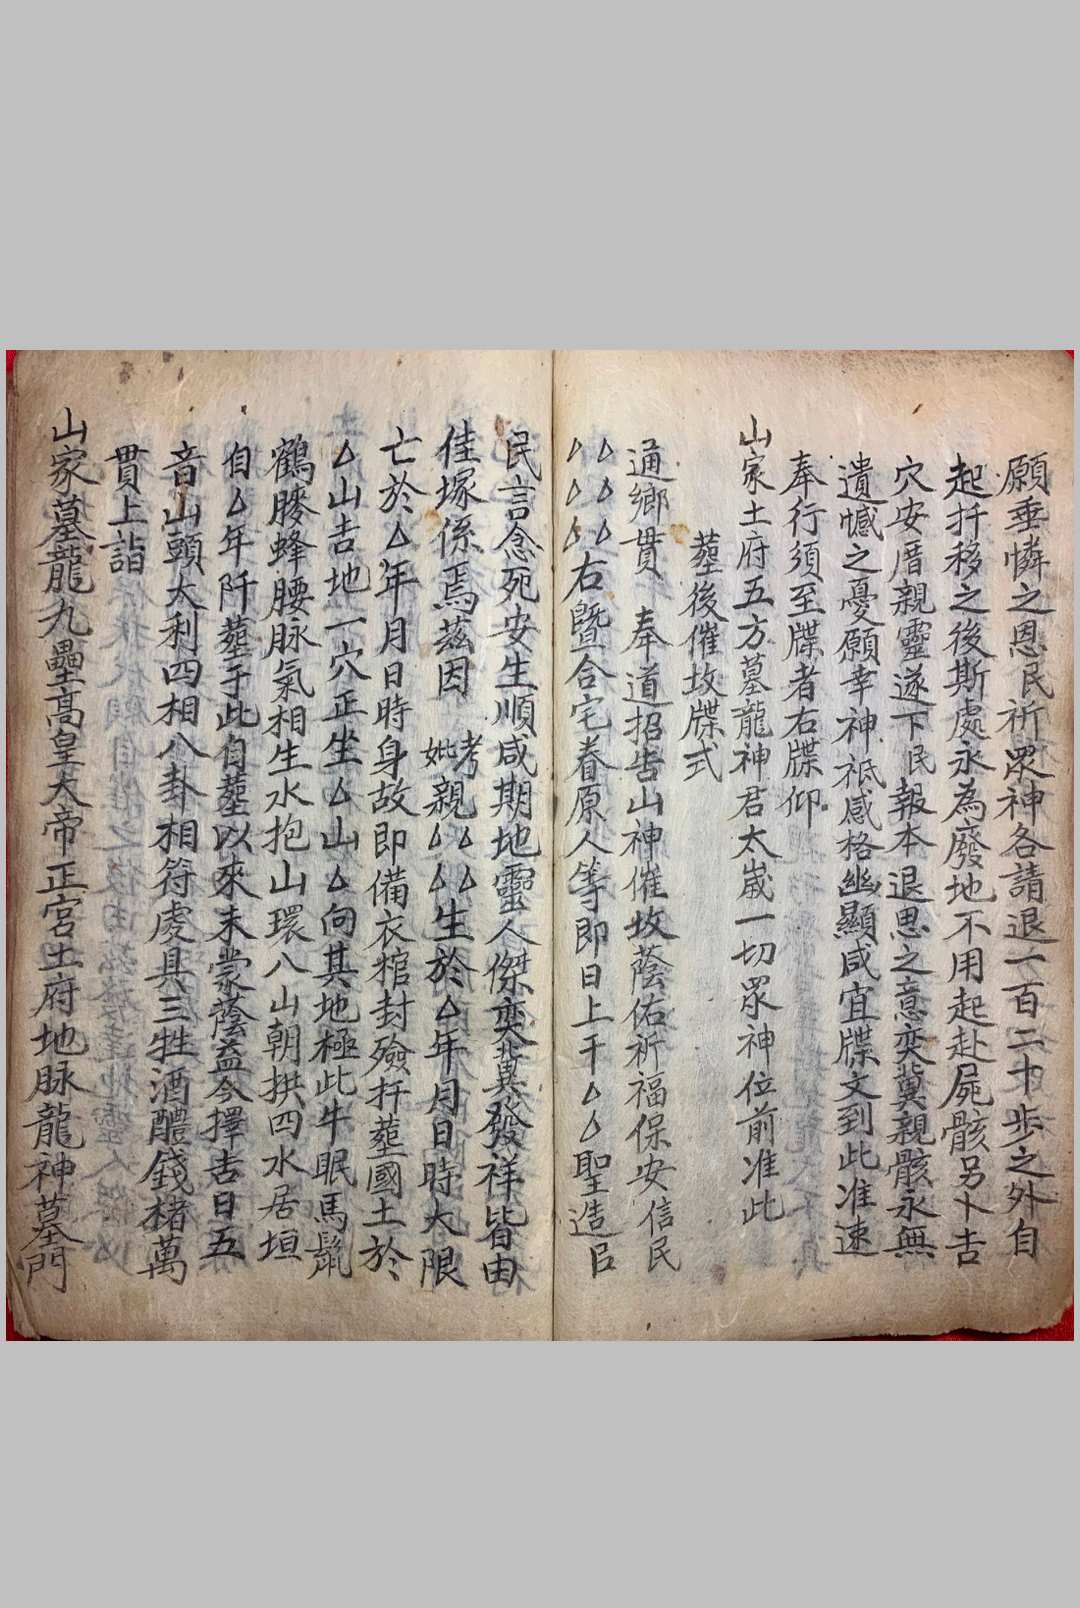 願垂憐之恩民祈眾神各請退一百二十步之外自
起扦移之後斯處永為廢地不用起赴屍骸另卜吉
穴安厝親靈遂下民報本退思之意奕冀親骸永無
遺憾之憂願幸神祇感格幽顯咸宜牒文到此准速
奉行須至牒者右牒仰
山家土府五方墓龍神君太歲一切眾神位前准此
塟後催坟牒式
通鄉貫 奉道招告山神催坟蔭佑祈福保安信民
△△△△△△右暨合宅眷原人等即日上干△△聖造㠯
民言念死安生順咸期地靈人傑奕冀發祥皆由
佳塚係焉茲因 考妣親△△△△生於△年月日時大限
亡於△年月日時身故即備衣棺封殮扦塟國土於
△山吉地一穴正坐△山△向其地極此牛眠馬鬣
鶴膝蜂腰脉氣相生水抱山環八山朝拱四水居垣
自△年阡塟于此自塟以來未蒙蔭益今擇吉日五
音山頭大利四相八卦相符虔具三牲酒醴錢楮萬
貫上詣
山家墓龍九壘高皇大帝正宮土府地脉龍神墓門